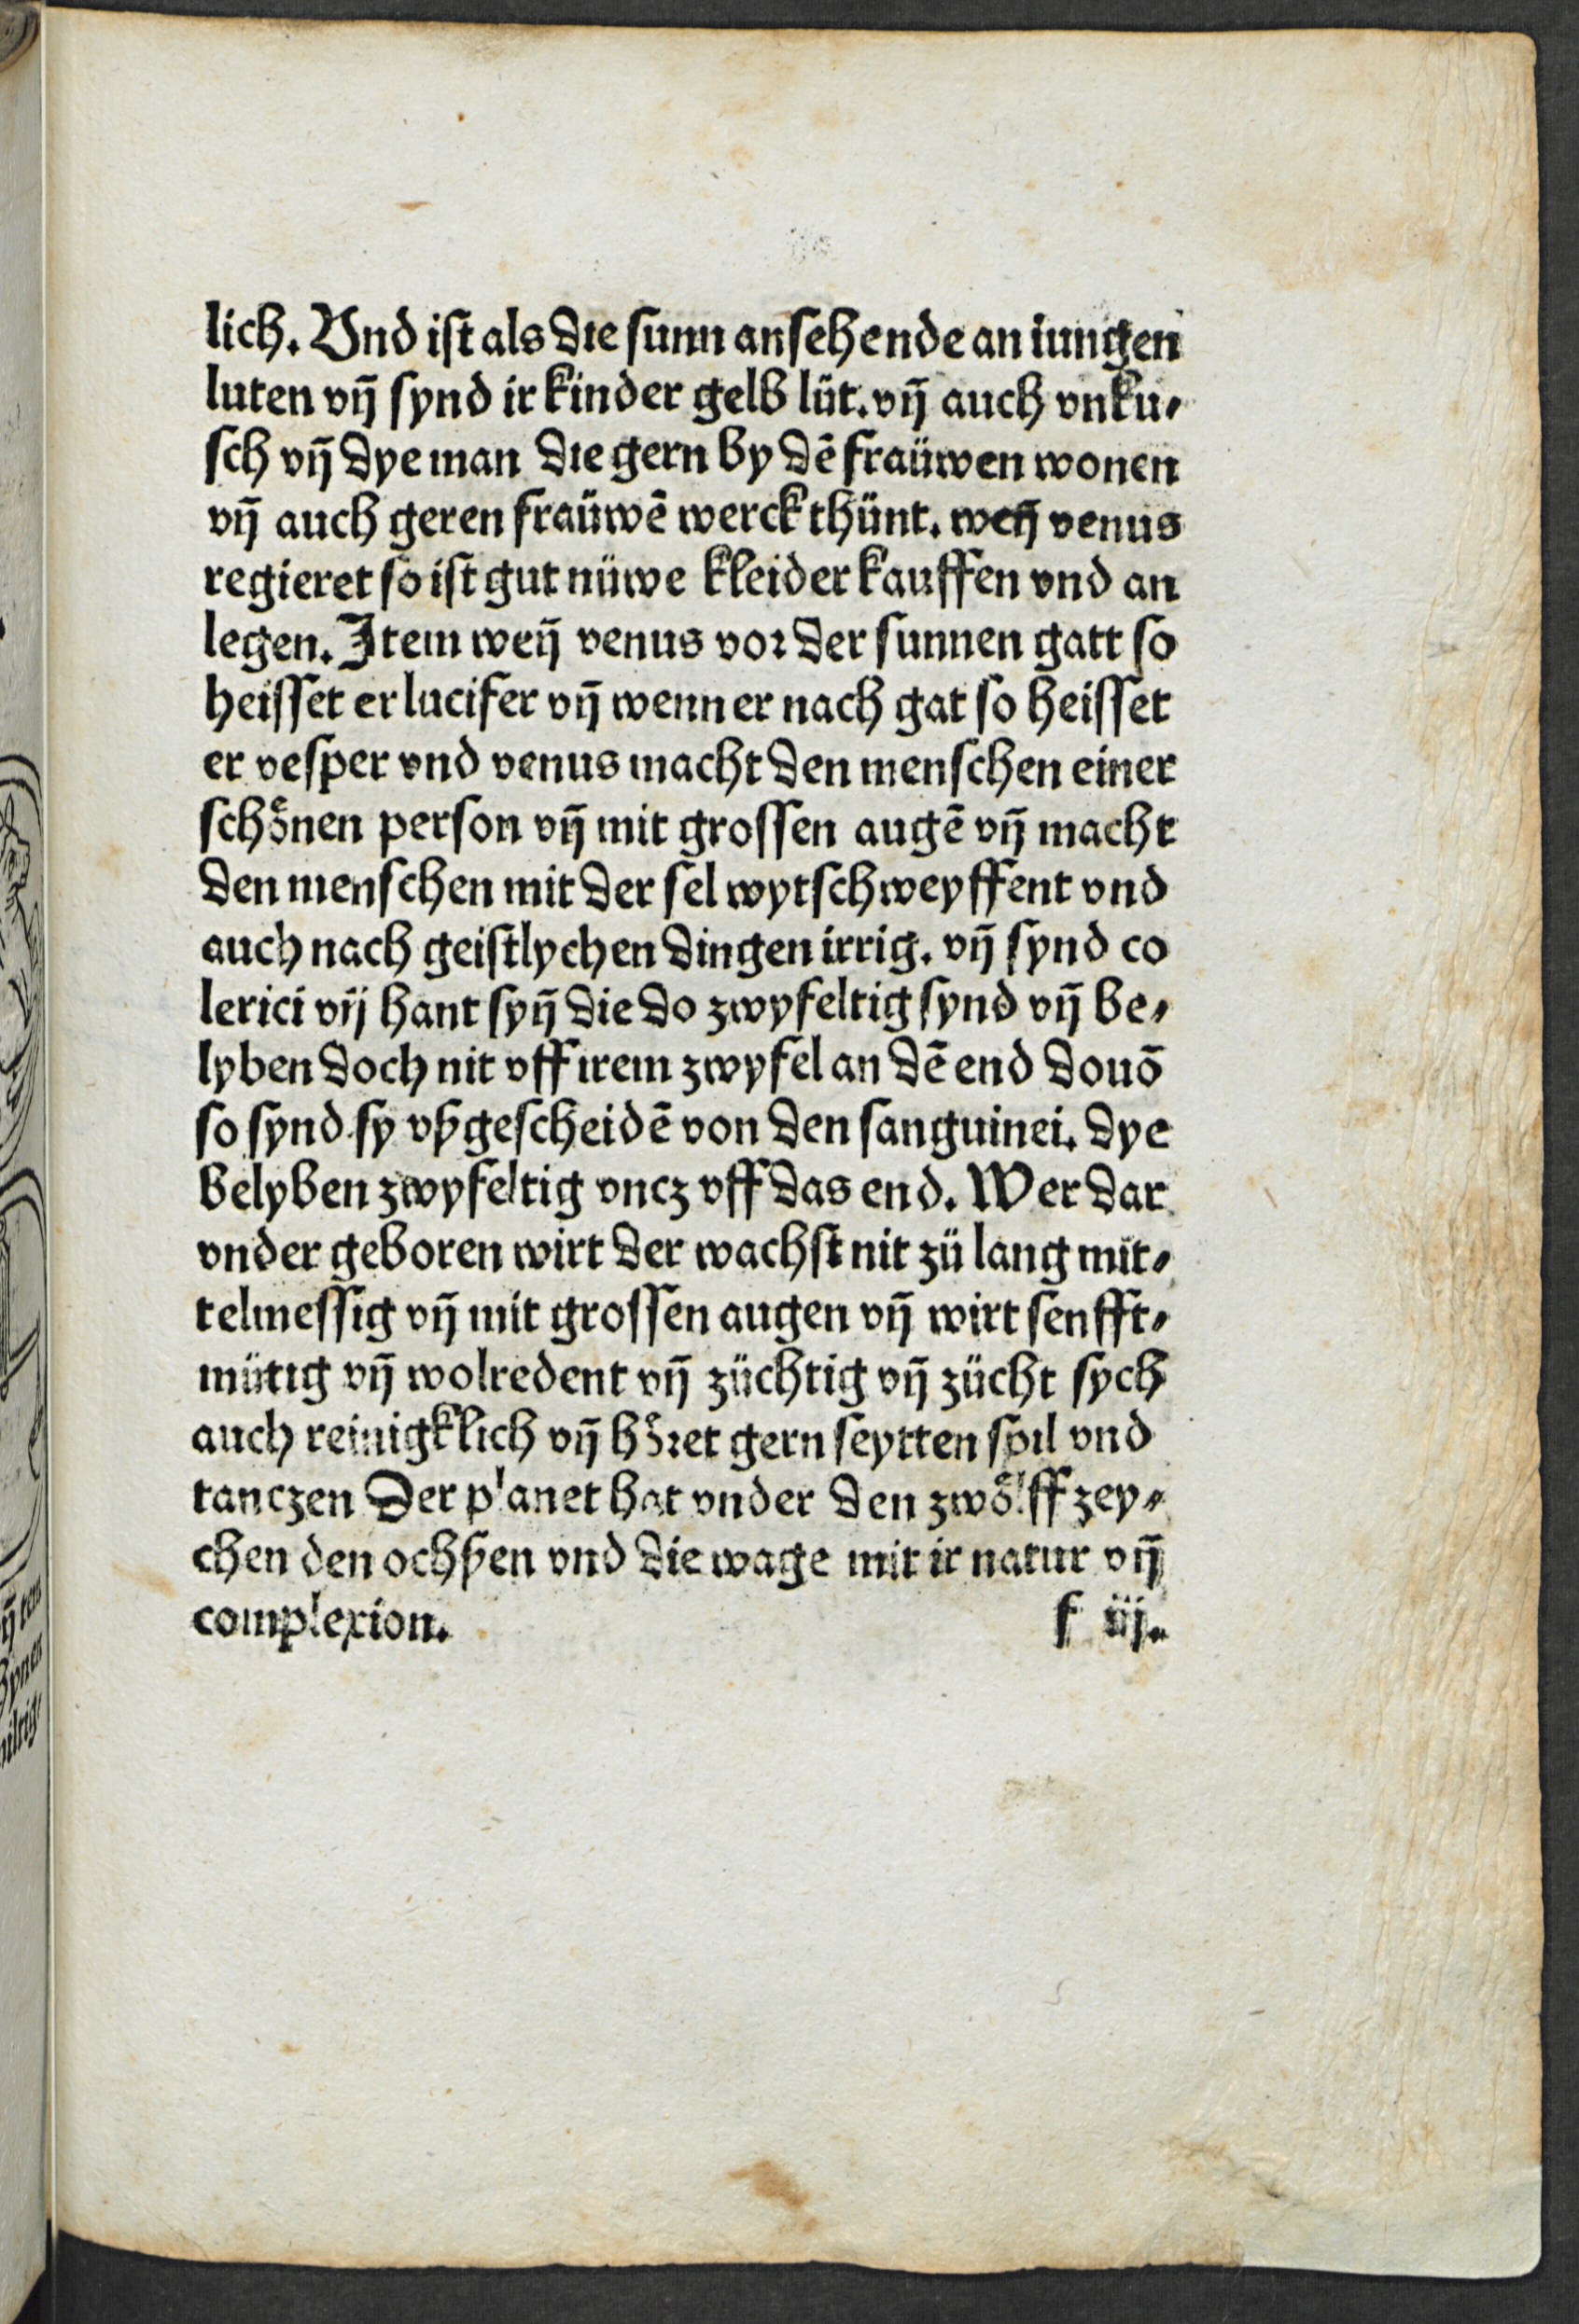 lich. Vnd ist als die sunn ansehende an iungen
luten vñ synd ir kinder gelb lüt. vñ auch vnku⸗
sch vñ dye man die gern by dē fraüwen wonen
vñ auch geren fraüwē werck thünt. weñ venus
regieret so ist gut nüwe kleider kauffen vnd an
legen. Item weñ venus vor der sunnen gatt so
heisset er lucifer vñ wenn er nach gat so heisset
er vesper vnd venus macht den menschen einer
schoͤnen person vñ mit grossen augē vñ macht
den menschen mit der sel wytschweyffent vnd
auch nach geistlychen dingen irrig. vñ synd co
lerici vñ hant syñ die do zwyfeltig synd vñ be⸗
lyben doch nit vff irem zwyfel an dē end douō
so synd sy vßgescheidē von den sanguinei. dye
belyben zwyfeltig vncz vff das end. Wer dar
vnder geboren wirt der wachst nit zü lang mit⸗
telmessig vñ mit grossen augen vñ wirt senfft⸗
mütig vñ wolredent vñ züchtig vñ zücht sych
auch reinigklich vñ hoͤret gern seytten spil vnd
tanczen Der planet hat vnder den zwoͤlff zey⸗
chen den ochßen vnd die wage mit ir natur vñ
complexion. f iij.